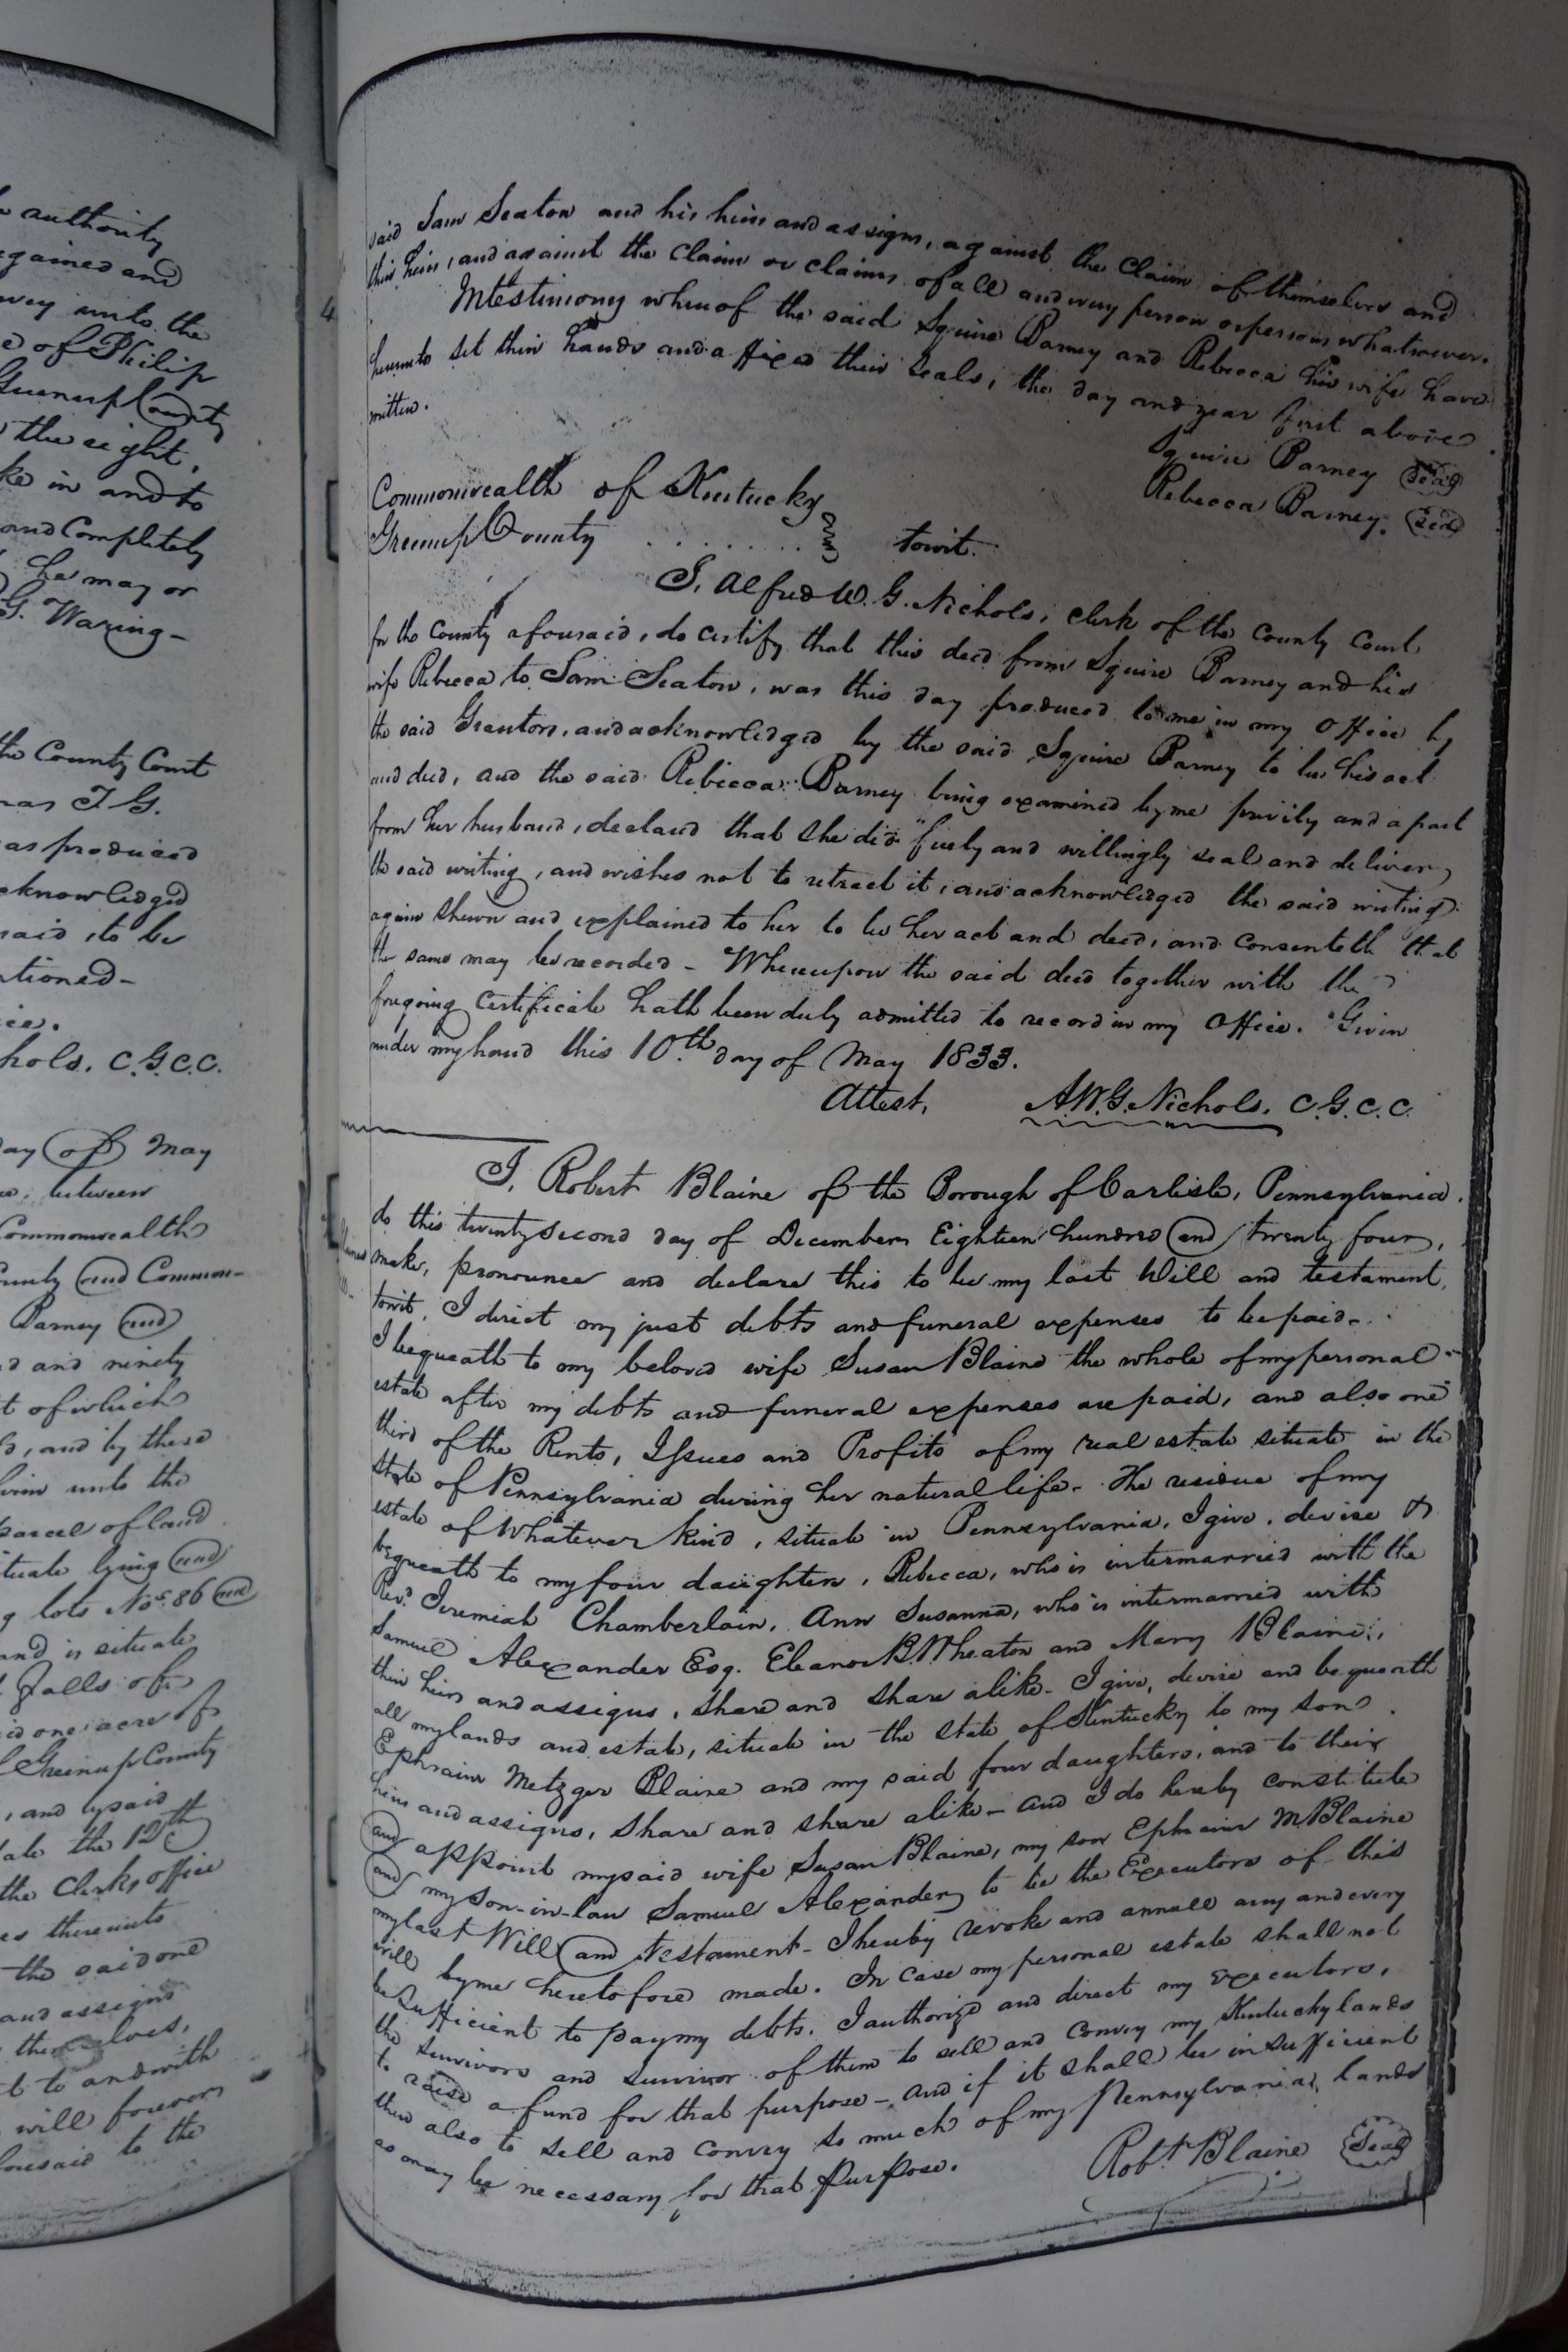 authority
and
unto the
of Philip
Greenup County
the right,
in and to
and Completely
he may or
G. Waring-
the County Court
T G.
as produced
acknowledged
said, to be
C.G.C.C.
day of May
between
Commonwealth
County and Common-
Barney and
and ninety
of which
and by these
unto the
parcel of land
situate lying and
lots Nos. 86 and
and is situate
Falls of
said one acre of
Greenup County
, and by said
the 12th
the Clerks office
thereunto
the said one
and assigns
themselves,
to and with
will forever
aforesaid to the
4
said Sam Seaton and his heirs and assigns, against the claim of themselves and
their heirs, and against the claim or claims of all and every person or persons whatsoever.
In testimony whereof the said Squire Barney and Rebecca his wife have
hereunto set their hands and affixed their seals, the day and year first above
written.
Squire Barney Seal
Rebecca Barney. Seal
Commonwealth of Kentucky
Greenup County ........ towit.
I, Alfred W. G. Nichols, clerk of the County Court
for the County aforesaid, do certify that this deed from Squire Barney and his
wife Rebecca to Sam Seaton, was this day produced to me in my Office by
the said Grantors, and acknowledged by the said Squire Barney to be his act
and deed, and the said Rebecca Barney being examined by me privily and apart
from her husband, declared that she did "freely and willingly seal and deliver
the said writing, and wishes not to retract it, and acknowledged the said writing
again shewn and explained to her to be her act and deed, and consenteth that
the same may be recorded - Whereupon the said deed together with the
foregoing certificate hath been duly admitted to record in my Office. Given
under my hand this 10th day of May 1833.
Attest, A.W.G. Nichols. C.G.C.C.
I, Robert Blaine of the Borough of Carlisle, Pennsylvania.
do this twenty second day of December Eighteen hundred and twenty four,
make, pronounce and declare this to be my last Will and testament,
towit, I direct my just debts and funeral expenses to be paid-
I bequeath to my beloved wife Susan Blaine the whole of my personal
estate after my debts and funeral expenses are paid, and also one
third of the Rents, Issues and Profits of my real estate situate in the
State of Pennsylvania during her natural life- The residue of my
estate of whatever kind, situate in Pennsylvania, I give, devise &
bequeath to my four daughters, Rebecca, who is intermarried with the
Revd. Jeremiah Chamberlain, Ann Susanna, who is intermarried with
Samuel Alexander Esq. Eleanor B. Wheaton and Mary Blaine,
their heirs and assigns, share and share alike- I give, devise and bequeath
all my lands and estate, situate in the state of Kentucky to my son
Ephraim Metzger Blaine and my said four daughters, and to their
heirs and assigns, share and share alike- and I do hereby constitute
and appoint my said wife Susan Blaine, my son Ephraim M Blaine
and my son-in-law Samuel Alexander, to be the Executors of this
my last Will and testament- I hereby revoke and annull any and every
will by me heretofore made. In case my personal estate shall not
be sufficient to pay my debts. I authorize and direct my executors,
the survivors and survivor of them to sell and convey my Kentucky lands
to raise a fund for that purpose- and if it shall be insufficient
then also to sell and convey so much of my Pennsylvania lands
as may be necessary for that purpose.
Robt Blaine Seal